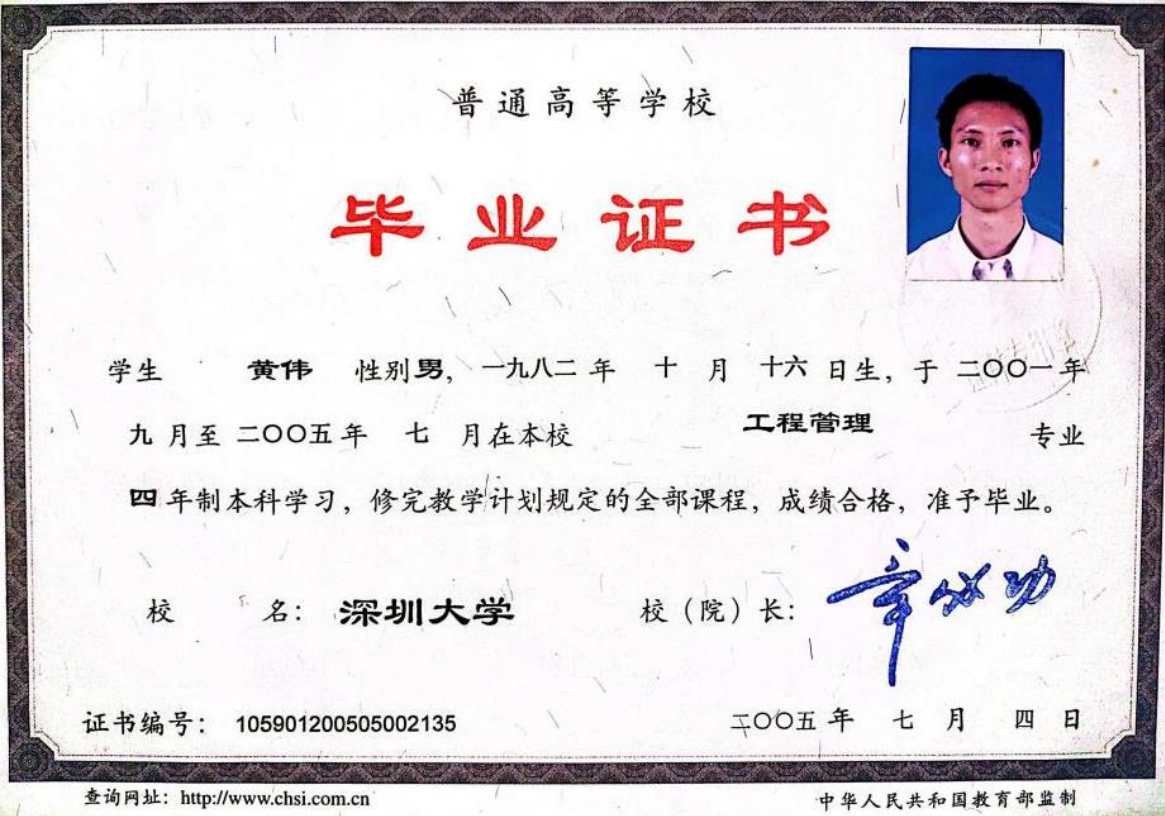 普通高等学校
毕业证书
学生 黄伟 性别男，一九八二年 十 月 十六 日生，于 二〇〇一年
九 月至 二〇〇五年 七 月在本校 工程管理 专业
四年制本科学习，修完教学计划规定的全部课程，成绩合格，准予毕业。
校 名：深圳大学 校（院）长：章必功
证书编号：105901200505002135 二〇〇五年 七 月 四 日
查询网址：http://www.chsi.com.cn 中华人民共和国教育部监制